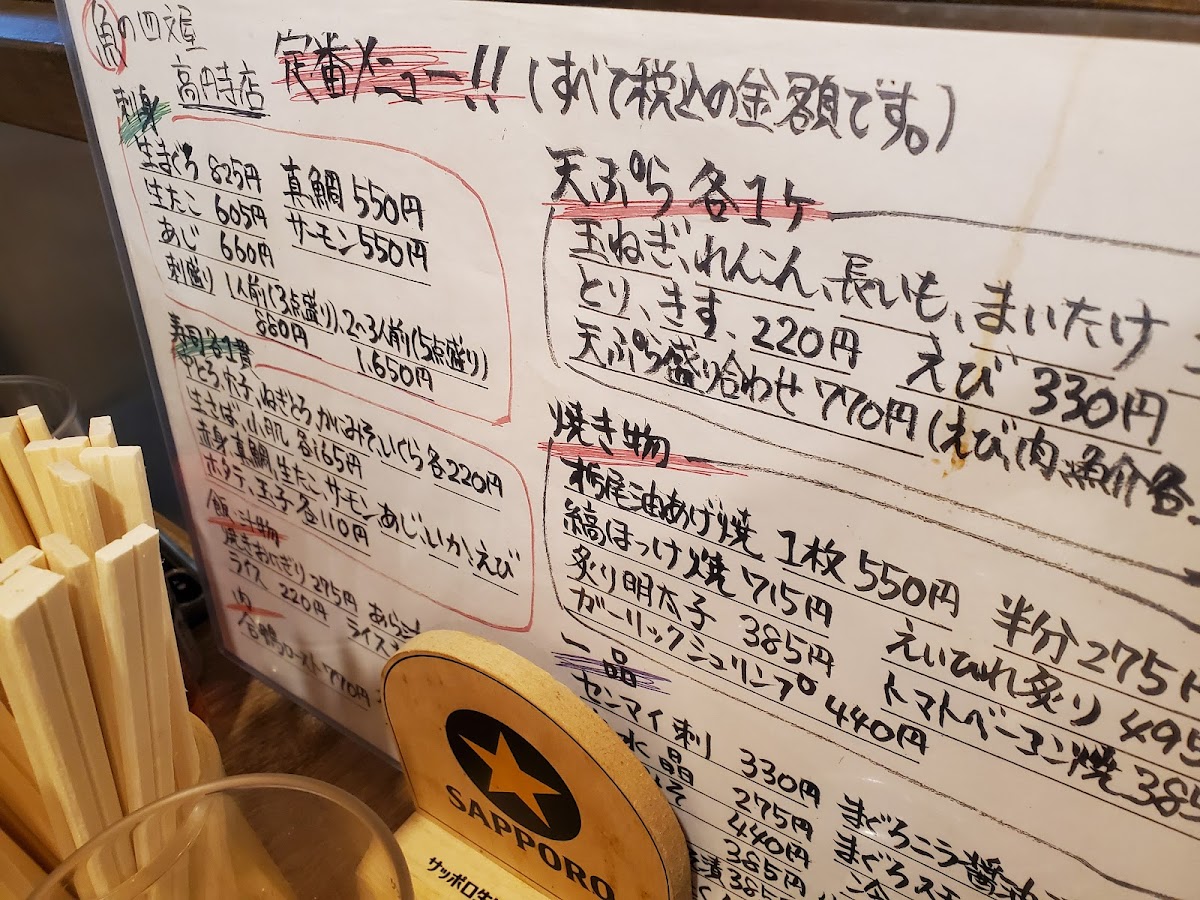 魚の四文屋
高円寺店
定番メニュー!! (すべて税込の金額です。)
刺身
生まぐろ 825円 真鯛 550円
生たこ 605円 サーモン 550円
あじ 660円
刺盛り 1人前(3点盛り)、2~3人前(5点盛り)
880円 1,650円
寿司 各1貫
中とろ、穴子、ねぎとろ、かにみそ、いくら 各220円
生さば、小肌 各165円
赤身、真鯛、生たこ、サーモン、あじ、いか、えび
ホタテ、玉子 各110円
飯、汁物
焼きおにぎり 275円 あら
ライス 220円 ライス
肉
合鴨ロースト 770円
天ぷら 各1ヶ
玉ねぎ、れんこん、長いも、まいたけ
とり、きす、220円 えび 330円
天ぷら盛り合わせ 770円 (えび、肉、魚介各
焼き物
栃尾油あげ焼 1枚 550円 半分 275円
縞ほっけ焼 715円 えいひれ炙り 495
炙り明太子 385円 トマトベーコン焼 385
ガーリックシュリンプ 440円
一品
センマイ刺 330円 まぐろニラ醤油
水晶 275円 まぐろス
440円
385円
漬 385
SAPPORO
サッポロ生